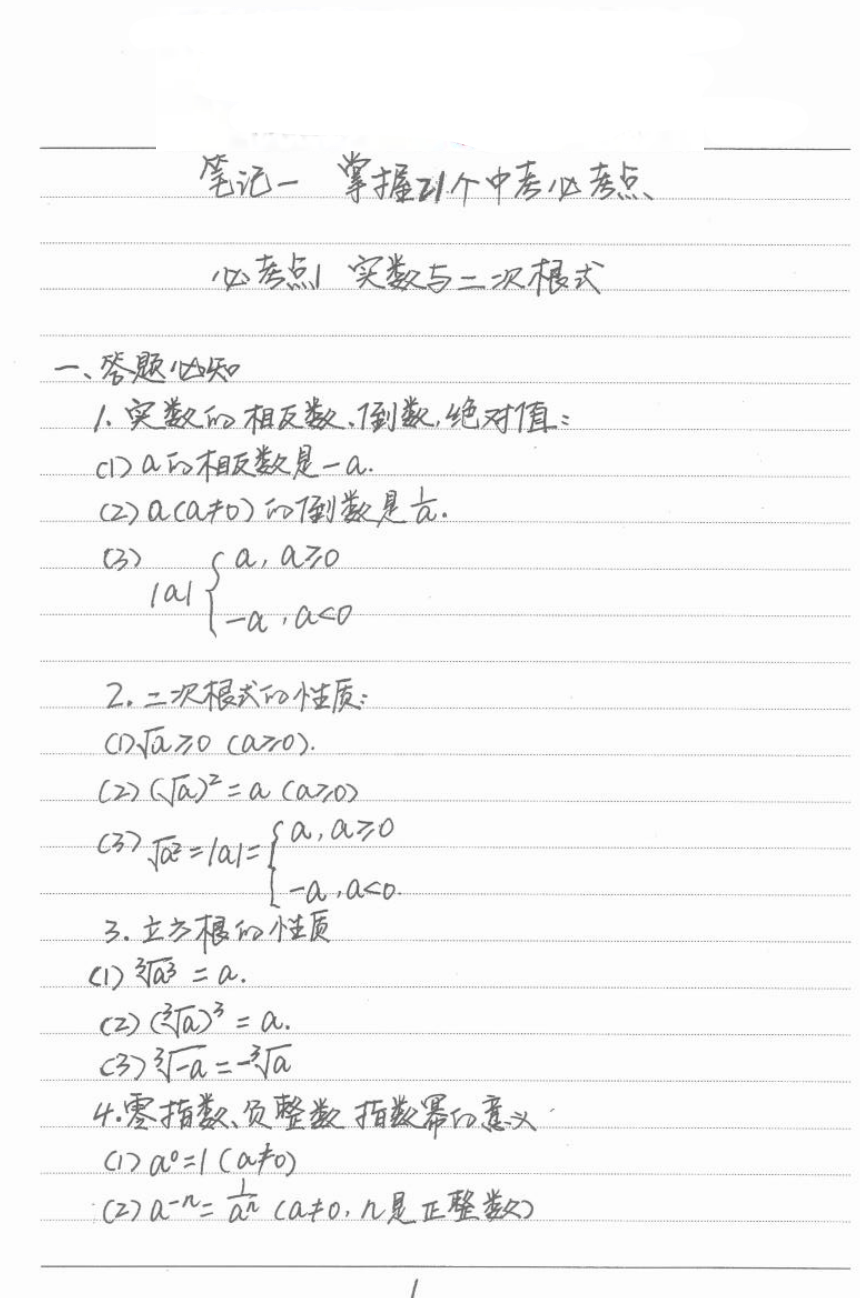 笔记一 掌握21个中考必考点、
必考点1 实数与二次根式
一、答题必知
1. 实数的相反数、倒数,绝对值:
(1) a的相反数是-a.
(2) a(a≠0)的倒数是1/a.
(3) |a| { a, a≥0
-a, a<0
2. 二次根式的性质:
(1) √a≥0 (a≥0).
(2) (√a)²=a (a≥0)
(3) √a²=|a|= { a, a≥0
-a, a<0.
3. 立方根的性质
(1) ∛a³ = a.
(2) (∛a)³ = a.
(3) ∛-a = -∛a
4. 零指数、负整数指数幂的意义
(1) a⁰=1 (a≠0)
(2) a⁻ⁿ= 1/aⁿ (a≠0, n是正整数)
1